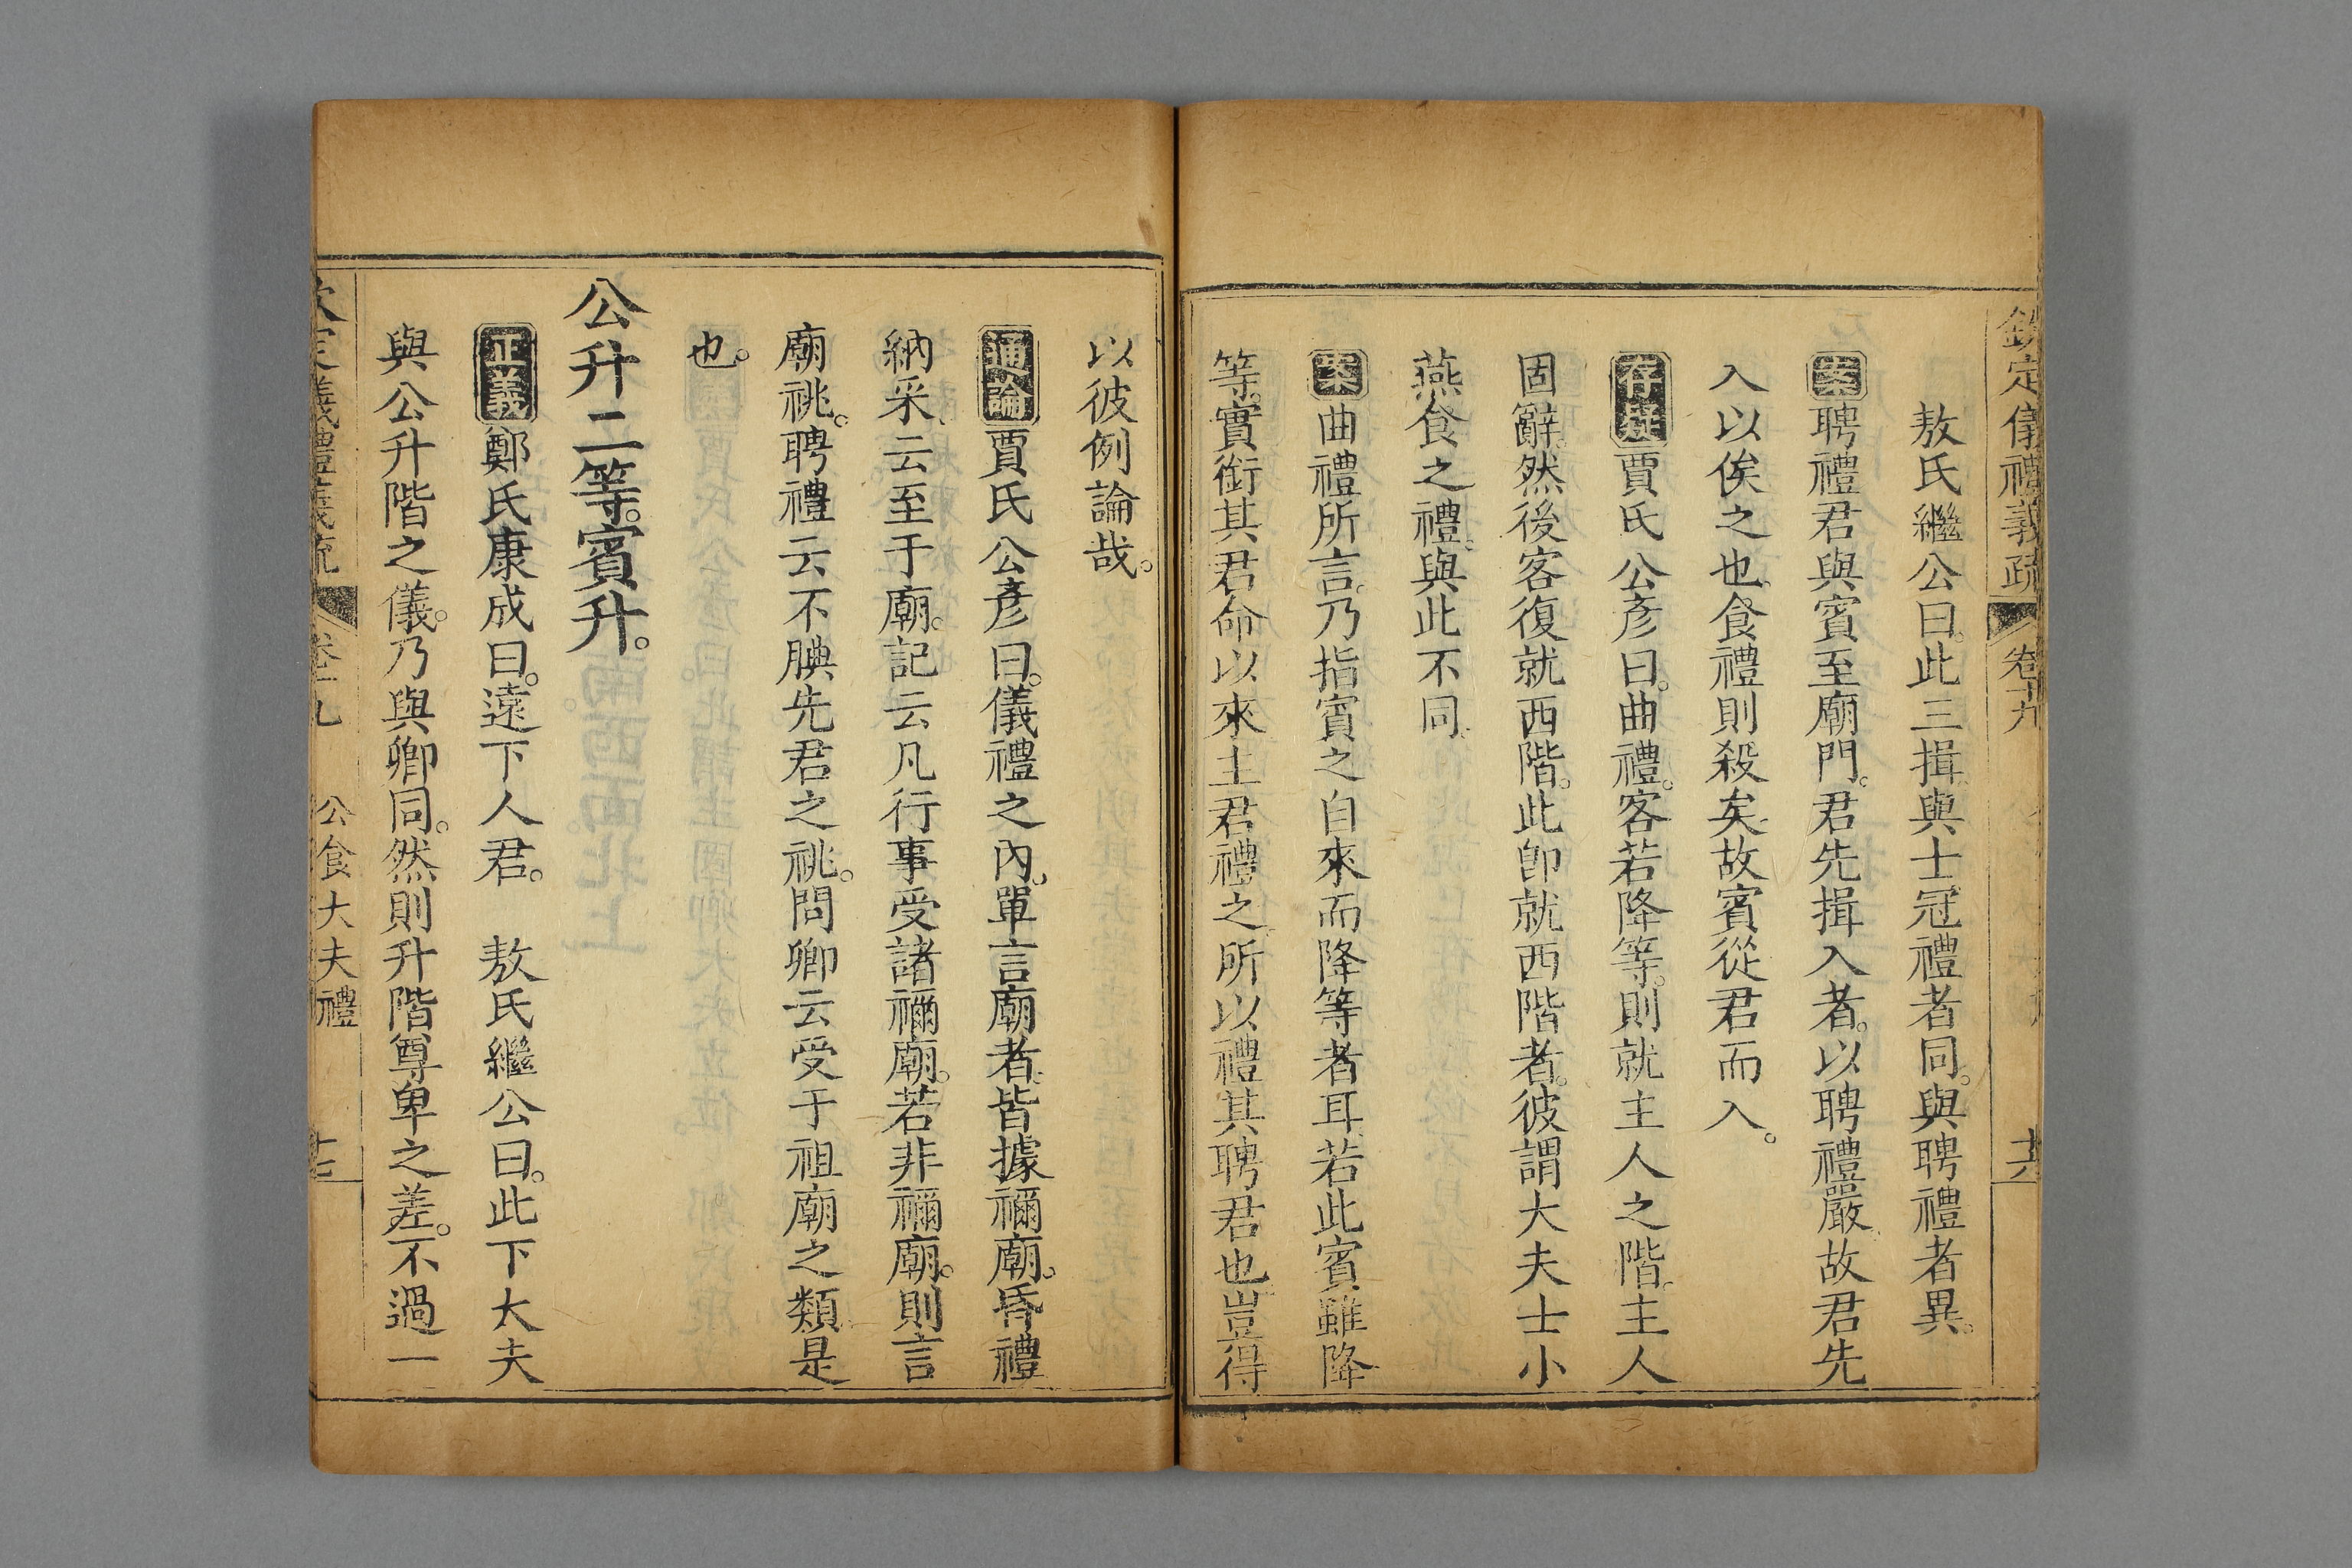 欽定儀禮義疏 卷十九 十六
敖氏繼公曰。此三揖與士冠禮者同。與聘禮者異。
案聘禮君與賓至廟門。君先揖入者。以聘禮嚴。故君先
入以俟之也。食禮則殺矣。故賓從君而入。
存疑賈氏公彥曰。曲禮。客若降等。則就主人之階。主人
固辭。然後客復就西階。此卽就西階者。彼謂大夫士小
燕食之禮。與此不同。
案曲禮所言。乃指賓之自來而降等者耳。若此賓雖降
等。實銜其君命以來。主君禮之。所以禮其聘君也。豈得
以彼例論哉。
通論賈氏公彥曰。儀禮之內。單言廟者。皆據禰廟。昏禮
納采、云至于廟。記云凡行事受諸禰廟。若非禰廟。則言
廟祧。聘禮云不腆先君之祧。問卿云受于祖廟之類是
也。
公升二等。賓升。
正義鄭氏康成曰。遠下人君。 敖氏繼公曰。此下大夫
與公升階之儀。乃與卿同。然則升階尊卑之差。不過一
欽定儀禮義疏 卷十九 公食大夫禮 十七